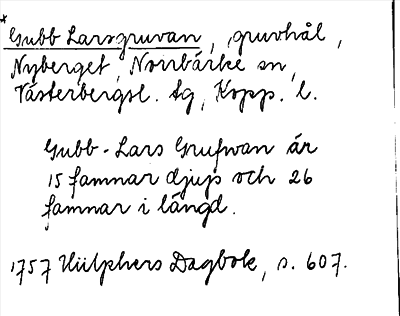 * Gubb Larsgruvan, gruvhål,
Nyberget, Norrbärke sn,
Västerbergsl. tg, Kopp. l.
Gubb-Lars Grufwan är
15 famnar djup och 26
famnar i längd.
1757 Hülphers Dagbok, s. 607.